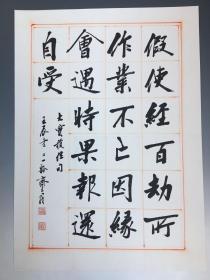 假使經百劫所
作業不亡因緣
會遇時果報還
自受
大寶積經句
壬辰